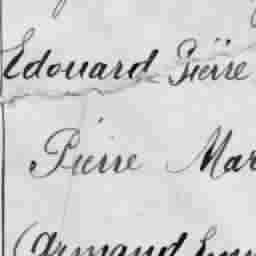 Edouard Pierre
Pierre Mar
(Armand